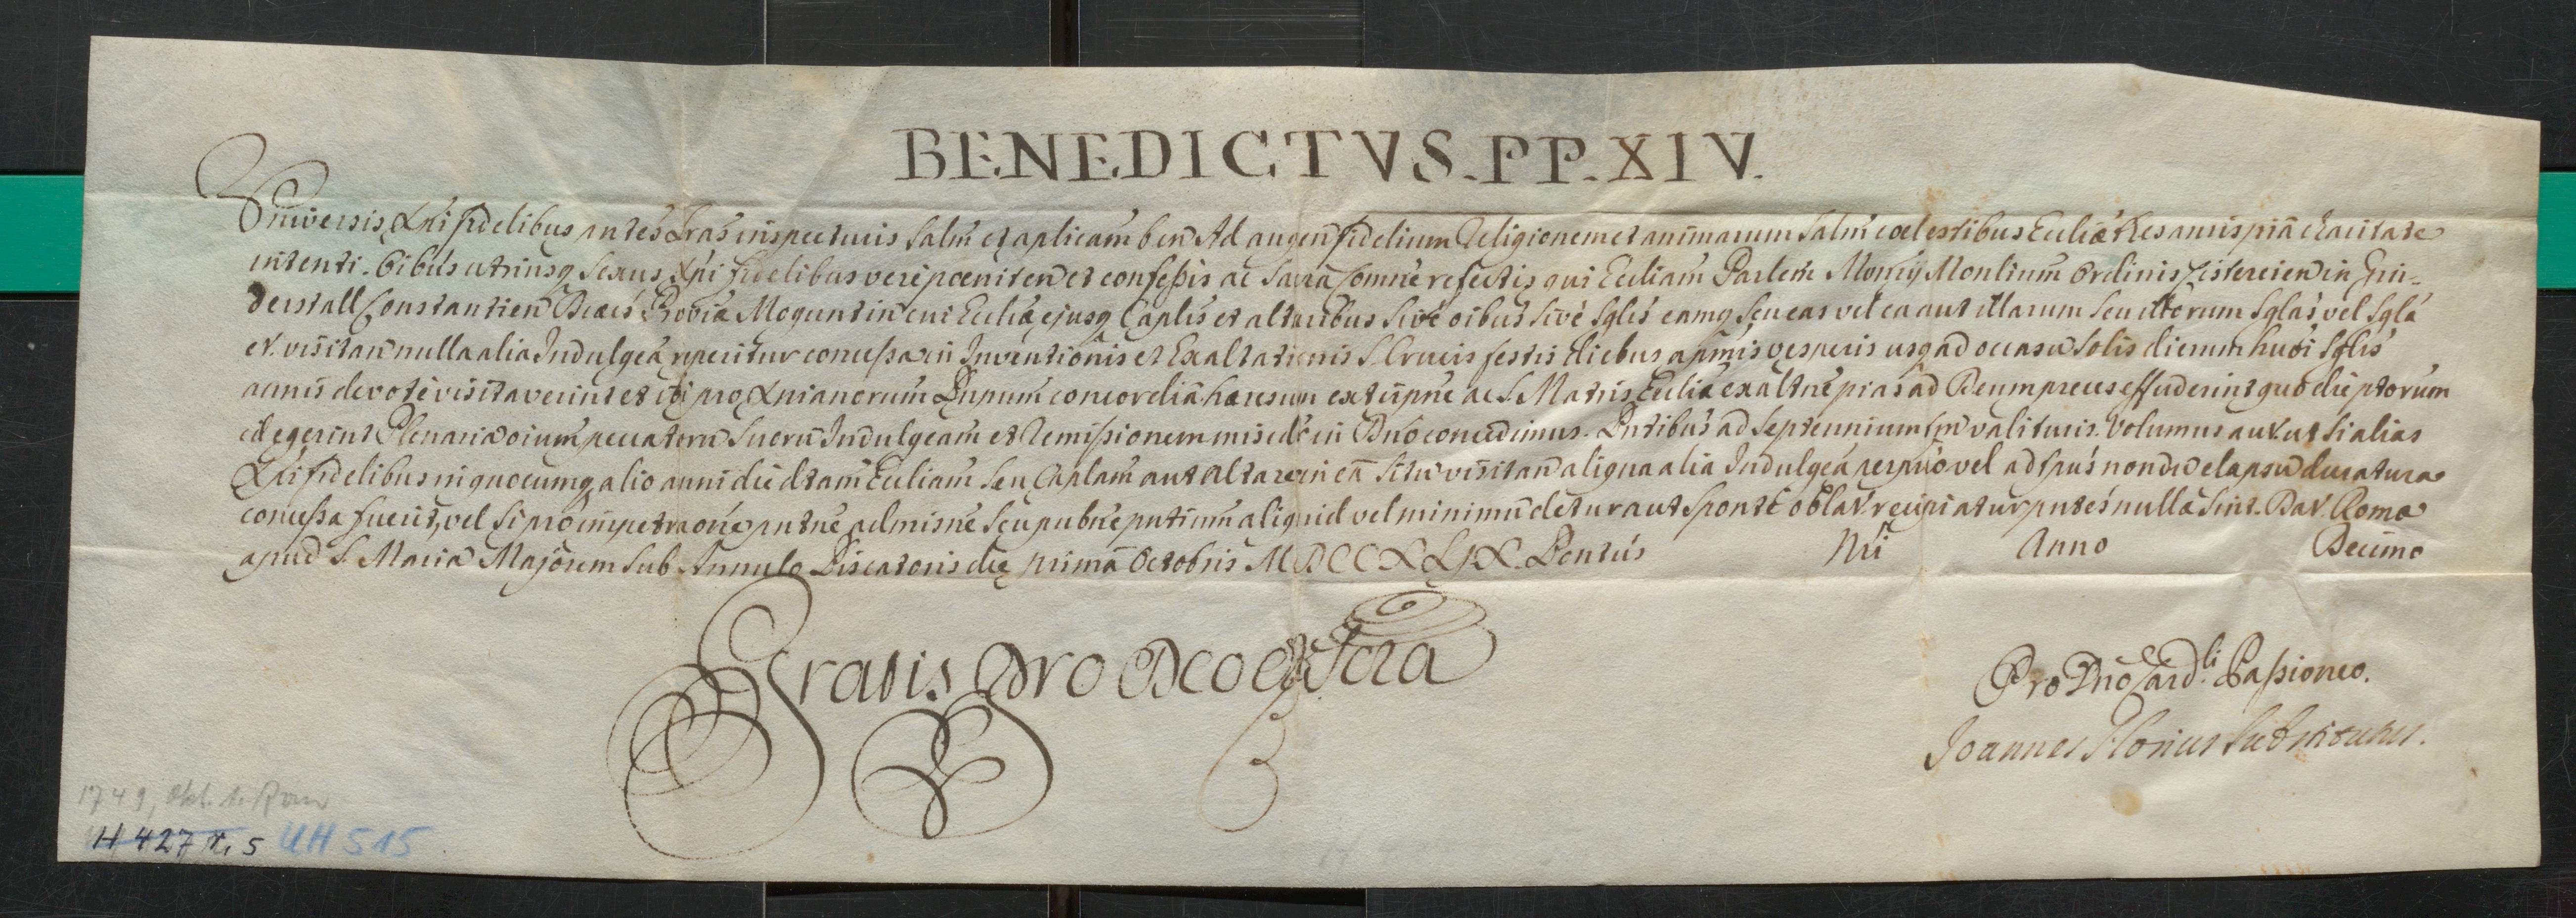 BENEDICTVS. PP. XIV.
Universis Xpi fidelibus pntes Lras inspecturis Salm et aplicam ben Ad augen fidelium Religionem et animarum Salm coelestibus Ecclie Thes auris pia charitate
intenti. Oibus utriusq Sexus Xpi fidelibus vere poeniten et confessis ac Sacra Comne refectis qui Ecliam Parlem Monrij Montium Ordinis Cistercien in Fri-
derstall Constantien Diecis Provia Moguntin cui Eclia ejusq Caplis et altaribus Sive oibus sive Sglis eamq Seu eas vel ea aut illarum Seu illorum Sglas vel Sgla
et. visitan nulla alia Indulgea reperitur concessa in Inventionis et Exaltationis S. Crucis festis diebus a pmis vesperis usq ad occasu Solis dierum hmoi Sglis
annis devote visitaverint et ibi pro Xpianorum Pnpum concordia haeresum extirpne ac S. Matris Eclia exaltne pias ad Deum preces effuderint quo die ptorum
id egerint Plenaria oium peccatoru Suoru Indulgeam et Remissionem miscdr in Dno concedimus. Pntibus ad Septennium tm valituris. Volumus aut. ut Si alias
Xpi fidelibus in quocumq alio anni die dtam Ecliam Seu Caplam aut Altare in ea Situ visitan aliqua alia Indulgea perpuo vel ad tpus nondu elapsu duratura
concessa fuerit, vel Si pro impetraone pntne admisne Seu pubne pntium aliquid vel minimu detur aut Sponte oblat. recipiatur pntes nulla Sint. Dat. Roma
apud S. Maria Majorem Sub Annulo Piscatoris die prima Octobris MDCCXLIX. Pontus Nri Anno Decimo
Gratis Pro Deo et Scra
Pro Dno Card.li Passioneo.
Joannes Florius Substitutus.
1749, Okt. 1. Rom
H 427 N. 5 UH 515